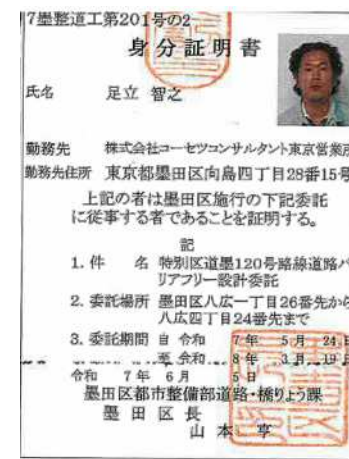 7墨整道工第201号の2
身分証明書
氏名 足立 智之
勤務先 株式会社コーセツコンサルタント東京営業所
勤務先住所 東京都墨田区向島四丁目28番15号
上記の者は墨田区施行の下記委託
に従事する者であることを証明する。
記
1. 件 名 特別区道墨120号路線道路バ
リアフリー設計委託
2. 委託場所 墨田区八広一丁目26番先から
八広四丁目24番先まで
3. 委託期間 自 令和 7年 5月 24日
至 令和 8年 3月 19日
令和 7年 6月 5日
墨田区都市整備部道路・橋りょう課
墨田区長
山本 亨